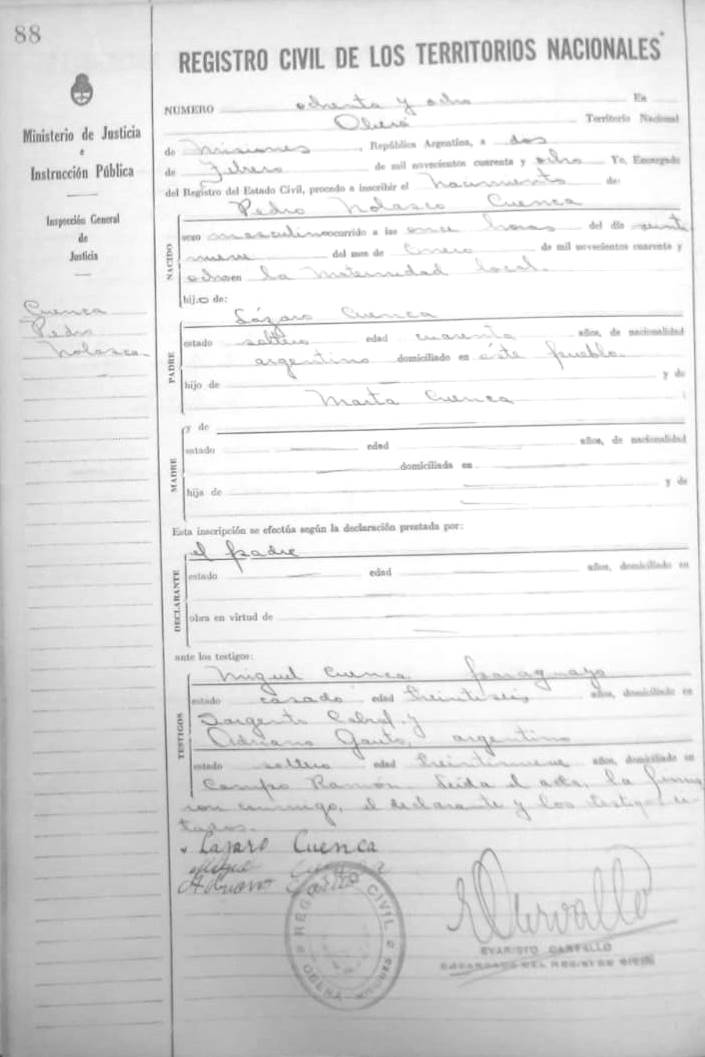 88
Ministerio de Justicia
e
Instrucción Pública
Inspección General
de
Justicia
Cuenca
Pedro
Nolasco
REGISTRO CIVIL DE LOS TERRITORIOS NACIONALES
NUMERO ochenta y ocho En
Oberá Territorio Nacional
de Misiones, República Argentina, a dos
de Febrero de mil novecientos cuarenta y ocho Yo, Encargado
del Registro del Estado Civil, procedo a inscribir el nacimiento de:
Pedro Nolasco Cuenca
NACIDO
sexo masculino ocurrido a las once horas del día veinte
nueve del mes de Enero de mil novecientos cuarenta y
ocho en la Maternidad local.
hijo de:
PADRE
Lázaro Cuenca
estado soltero edad cuarenta años, de nacionalidad
argentino domiciliado en éste pueblo
hijo de y de
Marta Cuenca
MADRE
y de
estado edad años, de nacionalidad
domiciliada en
hija de y de
Esta inscripción se efectúa según la declaración prestada por:
DECLARANTE
el padre
estado edad años, domiciliado en
obra en virtud de
ante los testigos:
TESTIGOS
Miguel Cuenca paraguayo
estado casado edad treintiseis años, domiciliado en
Sargento Cabral y
Adriano Gauto, argentino
estado soltero edad treintinueve años, domiciliado en
Campo Ramón. Leida el acta, la firma
ron conmigo, el declarante y los testigos ci
tados.
Lazaro Cuenca
REGISTRO CIVIL
OBERA MISIONES
EVARISTO CARVALLO
ENCARGADO DEL REGISTRO CIVIL